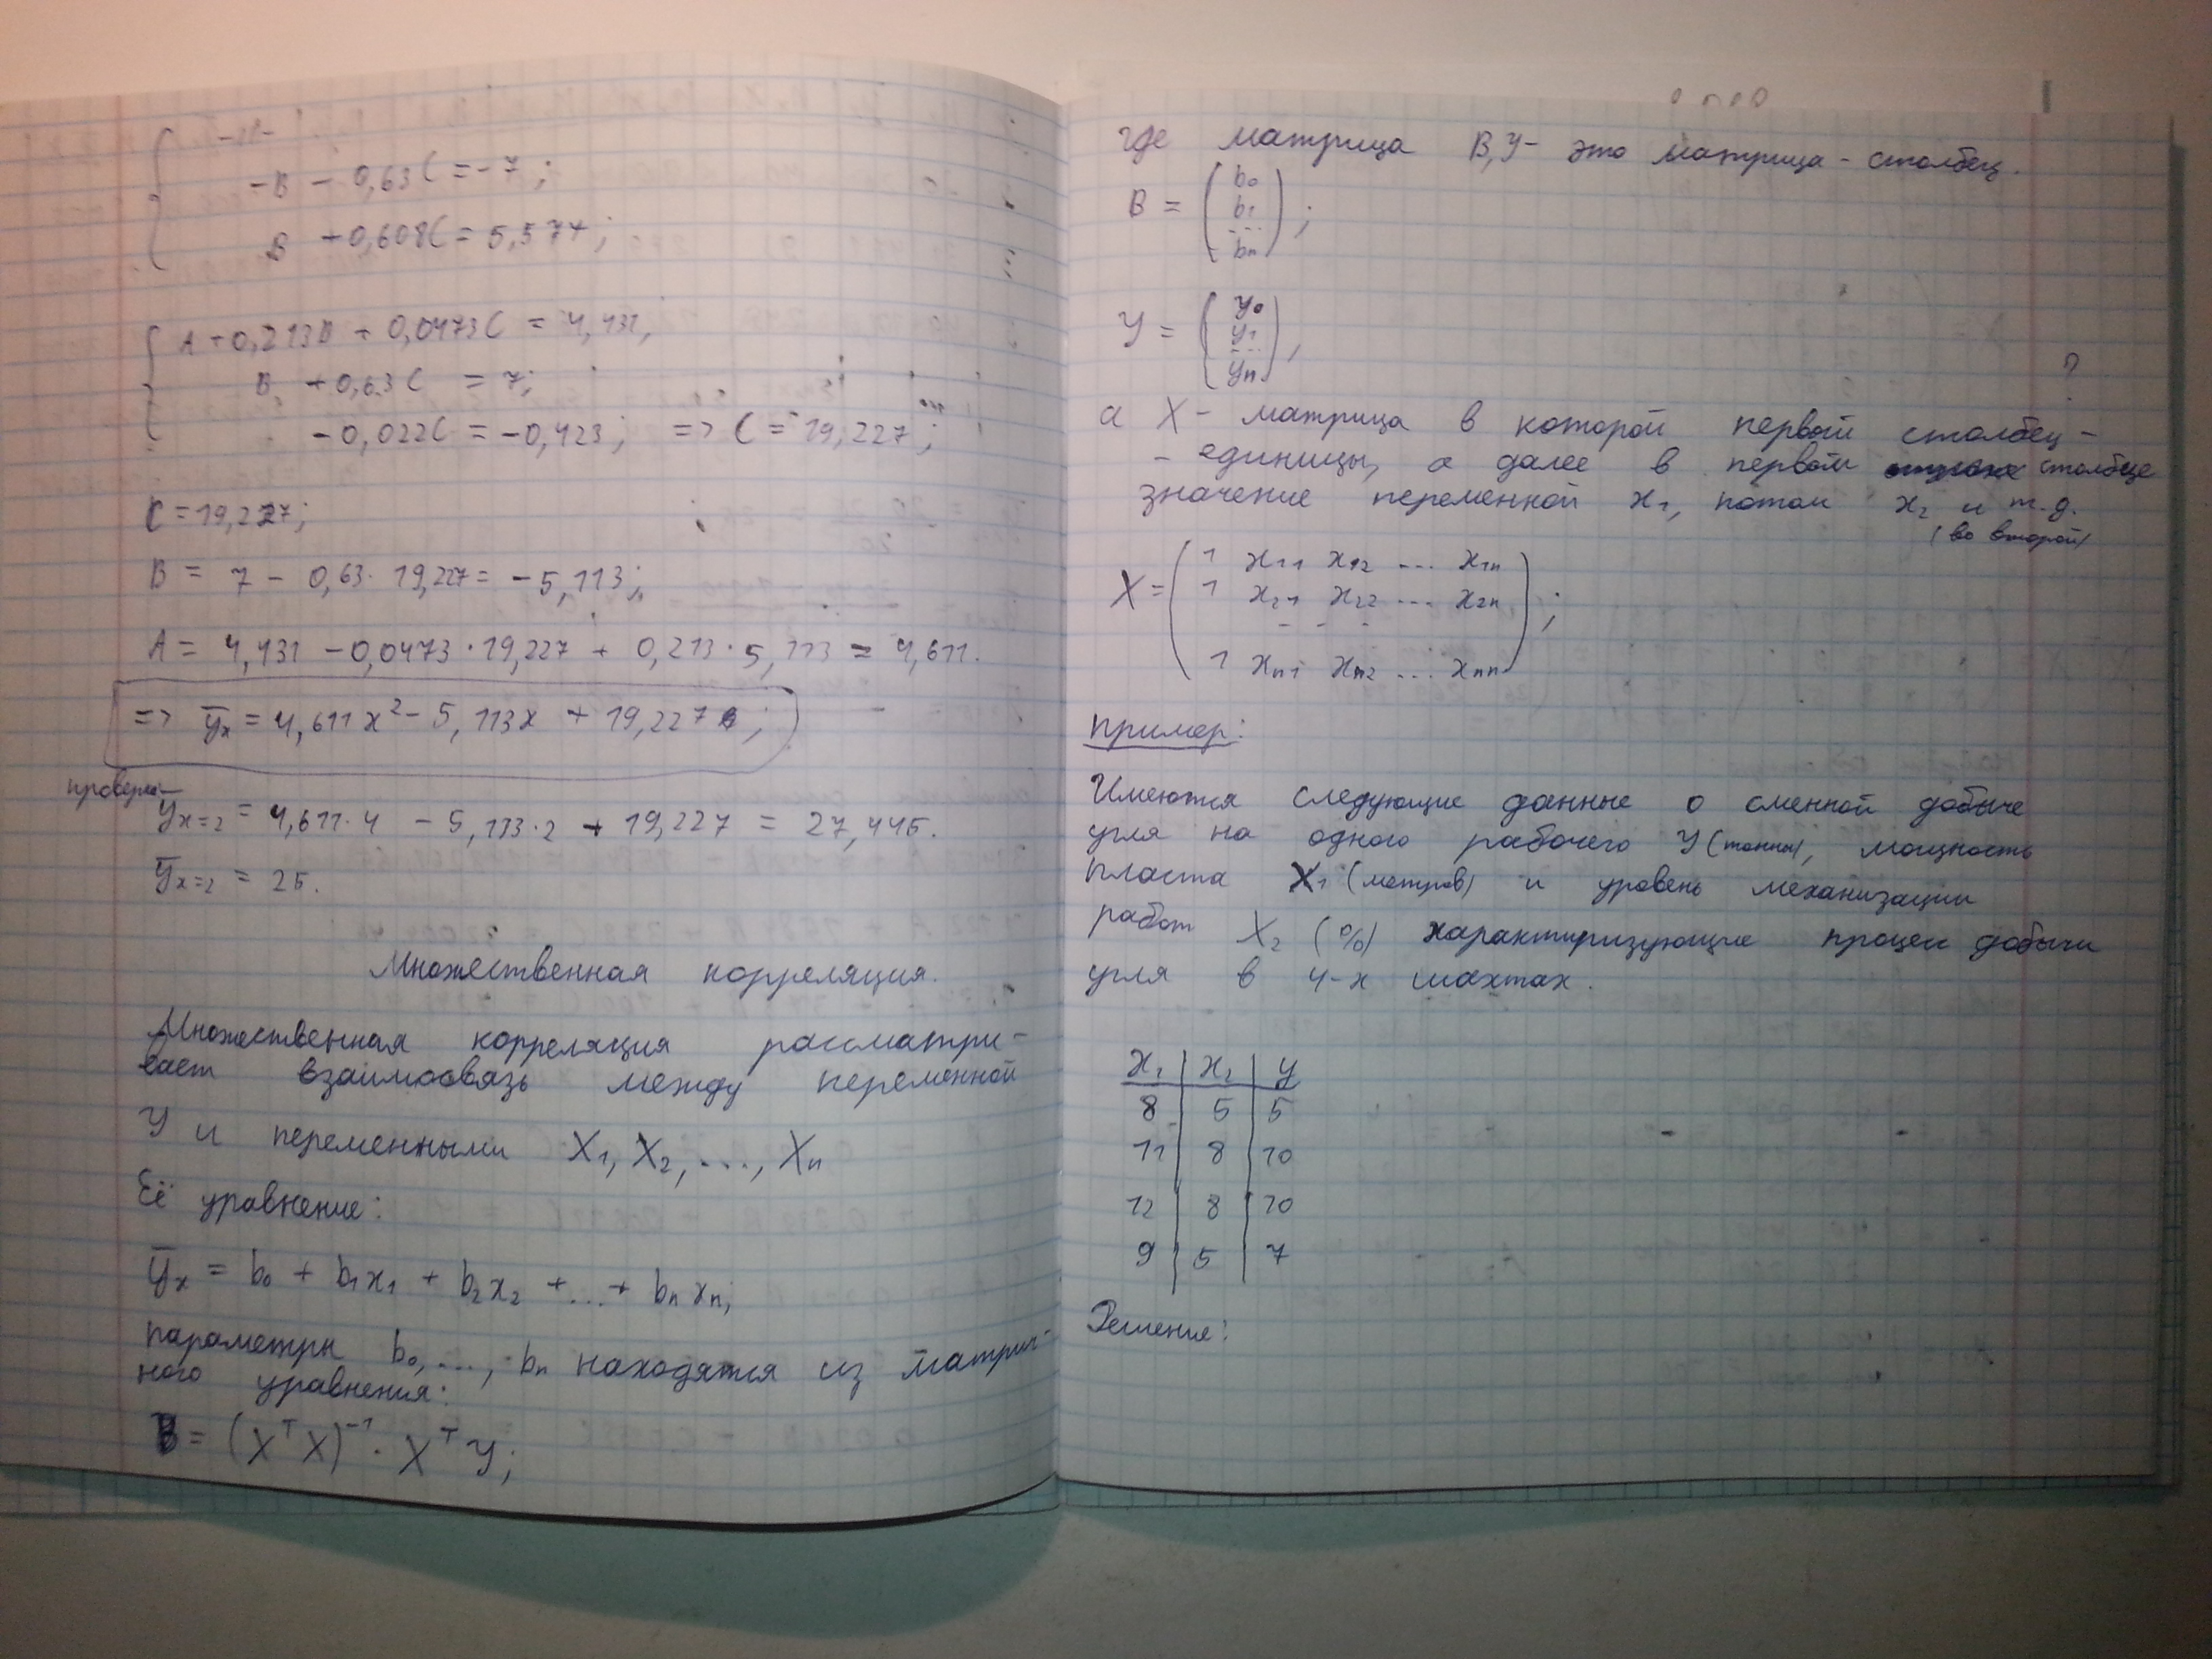 -11-
-B - 0,63C = -7;
B + 0,608C = 5,577;
A + 0,213B + 0,0473C = 4,431,
B + 0,63C = 7;
-0,022C = -0,423; => C = 19,227;
C = 19,227;
B = 7 - 0,63 · 19,227 = -5,113;
A = 4,431 - 0,0473 · 19,227 + 0,213 · 5,113 = 4,611.
=> y̅x = 4,611x² - 5,113x + 19,227;
проверка
y̅x=2 = 4,611·4 - 5,113·2 + 19,227 = 27,445.
y̅x=2 = 25.
Множественная корреляция.
Множественная корреляция рассматри-
вает взаимосвязь между переменной
У и переменными X₁, X₂, ..., Xn
Её уравнение:
y̅x = b₀ + b₁x₁ + b₂x₂ + ... + bnxn;
параметры b₀, ..., bn находятся из матрич-
ного уравнения:
B = (XᵀX)⁻¹ · XᵀY;
где матрица B, Y - это матрица - столбец.
B = ( b₀
b₁
...
bn );
Y = ( y₀
y₁
...
yn ),
?
а X - матрица в которой первый столбец -
- единицы, а далее в первом столбце
значение переменной x₁, потом x₂ и т.д.
(во второй)
X = ( 1 x₁₁ x₁₂ ... x₁n
1 x₂₁ x₂₂ ... x₂n
- - -
1 xn₁ xn₂ ... xnn );
Пример:
Имеются следующие данные о сменной добыче
угля на одного рабочего У (тонны), мощность
пласта X₁ (метров) и уровень механизации
работ X₂ (%) характиризующие процес добычи
угля в 4-х шахтах.
x₁ | x₂ | y
8 | 5 | 5
11 | 8 | 10
12 | 8 | 10
9 | 5 | 7
Решение: